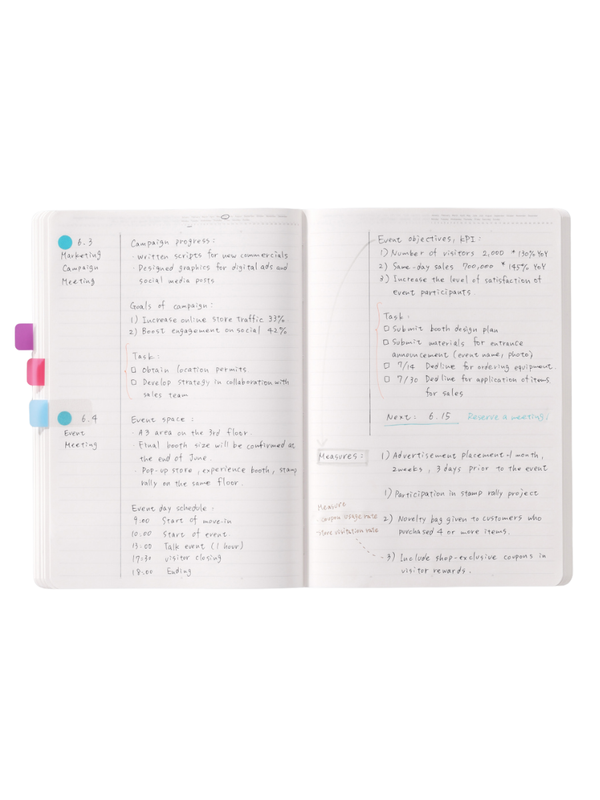 6.3
Marketing
Campaign
Meeting
Campaign progress:
· Written scripts for new commercials
· Designed graphics for digital ads and
social media posts
Goals of campaign:
1) Increase online store traffic 33%
2) Boost engagement on social 42%
Task:
□ Obtain location permits
□ Develop strategy in collaboration with
sales team
6.4
Event
Meeting
Event space:
· A3 area on the 3rd floor
· Final booth size will be confirmed at
the end of June.
· Pop-up store, experience booth, stamp
rally on the same floor.
Event day schedule:
9:00 Start of move-in
10:00 Start of event
13:00 Talk event (1 hour)
17:30 visitor closing
18:00 Ending
Event objectives, KPI:
1) Number of visitors 2,000 *130% YoY
2) Same-day sales 700,000 *145% YoY
3) Increase the level of satisfaction of
event participants
Task:
□ Submit booth design plan
□ Submit materials for entrance
announcement (event name, photo)
□ 7/14 Dedline for ordering equipment.
□ 7/30 Dedline for application of items
for sales
Next: 6.15 Reserve a meeting!
Measures:
1) Advertisement placement-1 month,
2weeks, 3 days prior to the event
1) Participation in stamp rally project
2) Novelty bag given to customers who
purchased 4 or more items.
3) Include shop-exclusive coupons in
visitor rewards.
Measure
coupon usage rate
store visitation rate